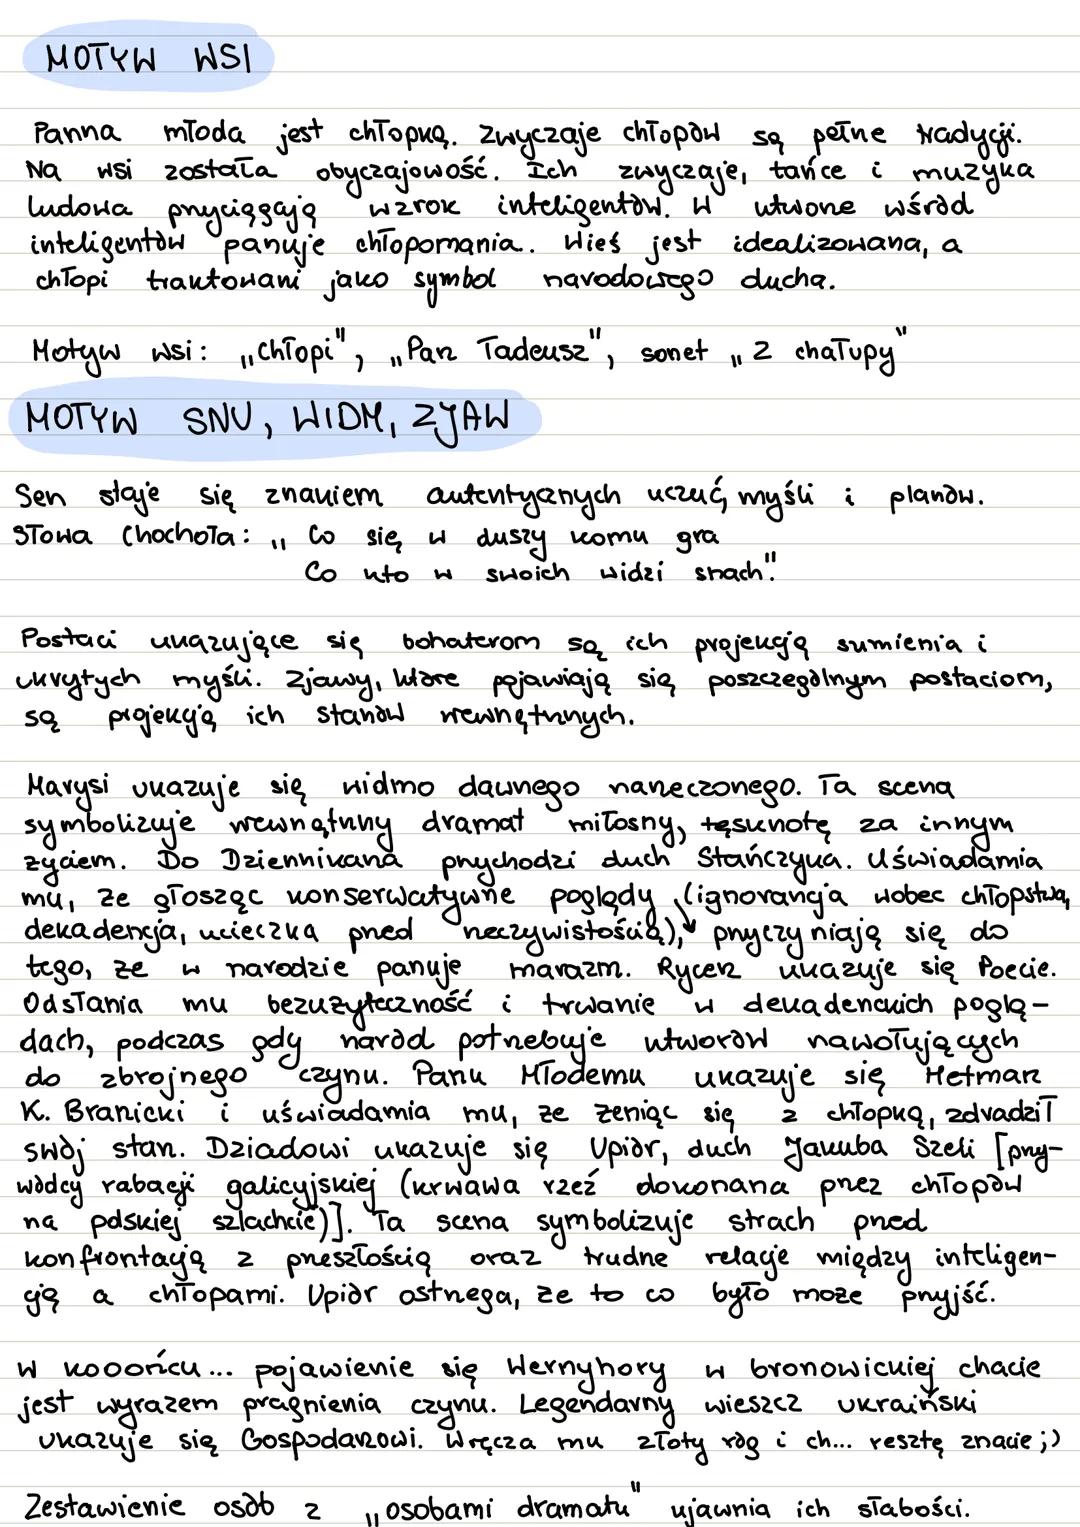 MOTYW WSI
Panna młoda jest chłopką. Zwyczaje chłopów są pełne tradycji.
Na wsi została obyczajowość. Ich zwyczaje, tańce i muzyka
ludowa przyciągają wzrok inteligentów. W utworze wśród
inteligentów panuje chłopomania. Wieś jest idealizowana, a
chłopi traktowani jako symbol narodowego ducha.
Motyw wsi: „Chłopi", „Pan Tadeusz", sonet „Z chałupy"
MOTYW SNU, WIDM, ZJAW
Sen staje się znakiem autentycznych uczuć, myśli i planów.
Słowa Chochoła: „Co się w duszy komu gra
Co kto w swoich widzi snach".
Postaci ukazujące się bohaterom są ich projekcją sumienia i
ukrytych myśli. Zjawy, które pojawiają się poszczególnym postaciom,
są projekcją ich stanów wewnętrznych.
Marysi ukazuje się widmo dawnego narzeczonego. Ta scena
symbolizuje wewnętrzny dramat miłosny, tęsknotę za innym
życiem. Do Dziennikarza przychodzi duch Stańczyka. Uświadamia
mu, że głosząc konserwatywne poglądy (ignorancja wobec chłopstwa,
dekadencja, ucieczka przed rzeczywistością), przyczyniają się do
tego, że w narodzie panuje marazm. Rycerz ukazuje się Poecie.
Odsłania mu bezużyteczność i trwanie w dekadenckich poglą-
dach, podczas gdy naród potrzebuje utworów nawołujących
do zbrojnego czynu. Panu Młodemu ukazuje się Hetman
K. Branicki i uświadamia mu, że żeniąc się z chłopką, zdradził
swój stan. Dziadowi ukazuje się Upiór, duch Jakuba Szeli [przy-
wódcy rabacji galicyjskiej (krwawa rzeź dokonana przez chłopów
na polskiej szlachcie)]. Ta scena symbolizuje strach przed
konfrontacją z przeszłością oraz trudne relacje między inteligen-
cją a chłopami. Upiór ostrzega, że to co było może przyjść.
W kooońcu... pojawienie się Wernyhory w bronowickiej chacie
jest wyrazem pragnienia czynu. Legendarny wieszcz ukraiński
ukazuje się Gospodarzowi. Wręcza mu złoty róg i ch... resztę znacie ;)
Zestawienie osób z „osobami dramatu" ujawnia ich słabości.